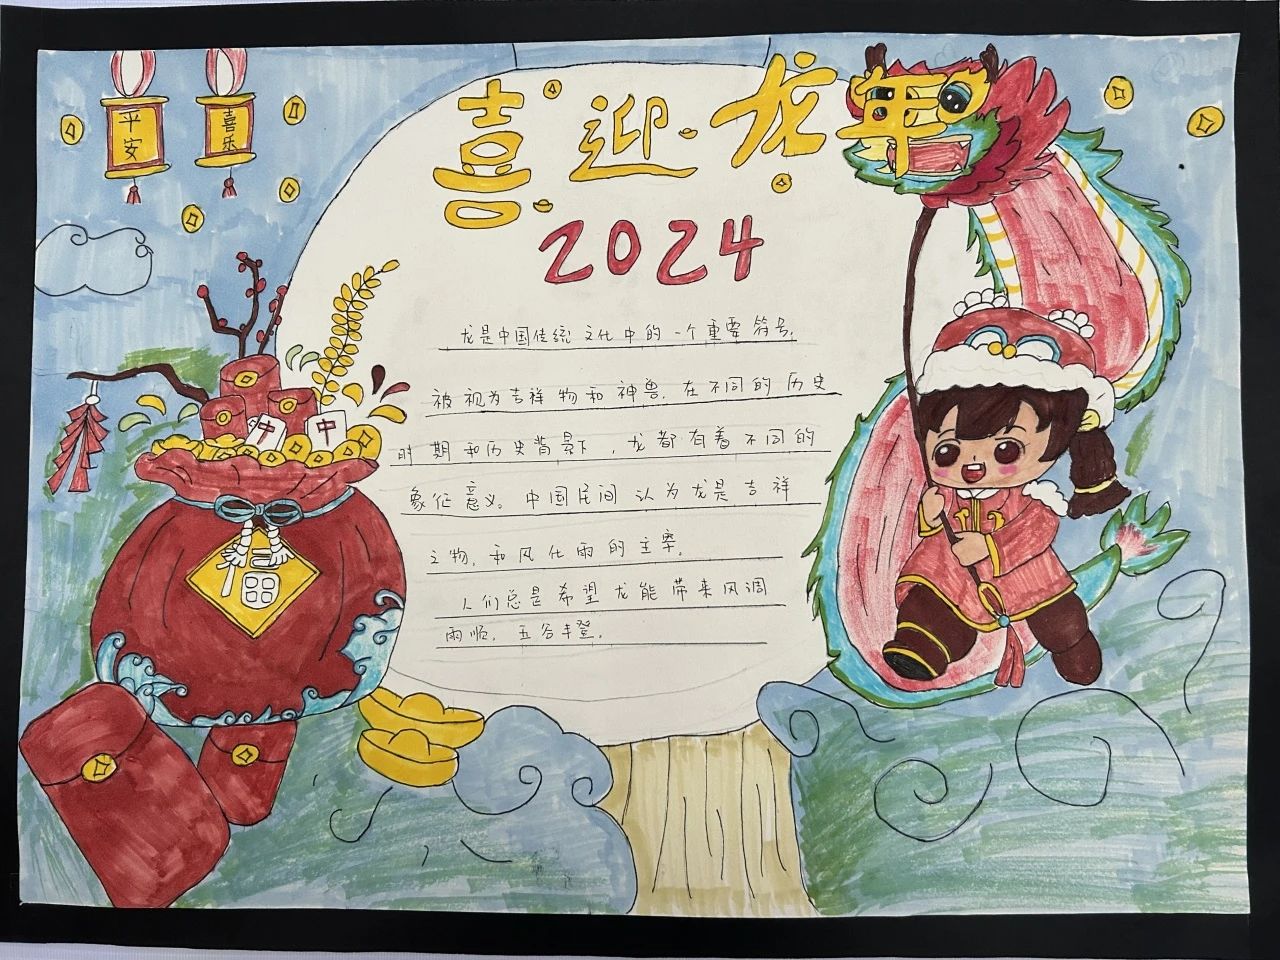 平安
喜乐
喜迎龙年
2024
龙是中国传统文化中的一个重要符号,
被视为吉祥物和神兽.在不同的历史
时期和历史背景下,龙都有着不同的
象征意义。中国民间认为龙是吉祥
之物,和风化雨的主宰,
人们总是希望龙能带来风调
雨顺,五谷丰登,
中
中
福